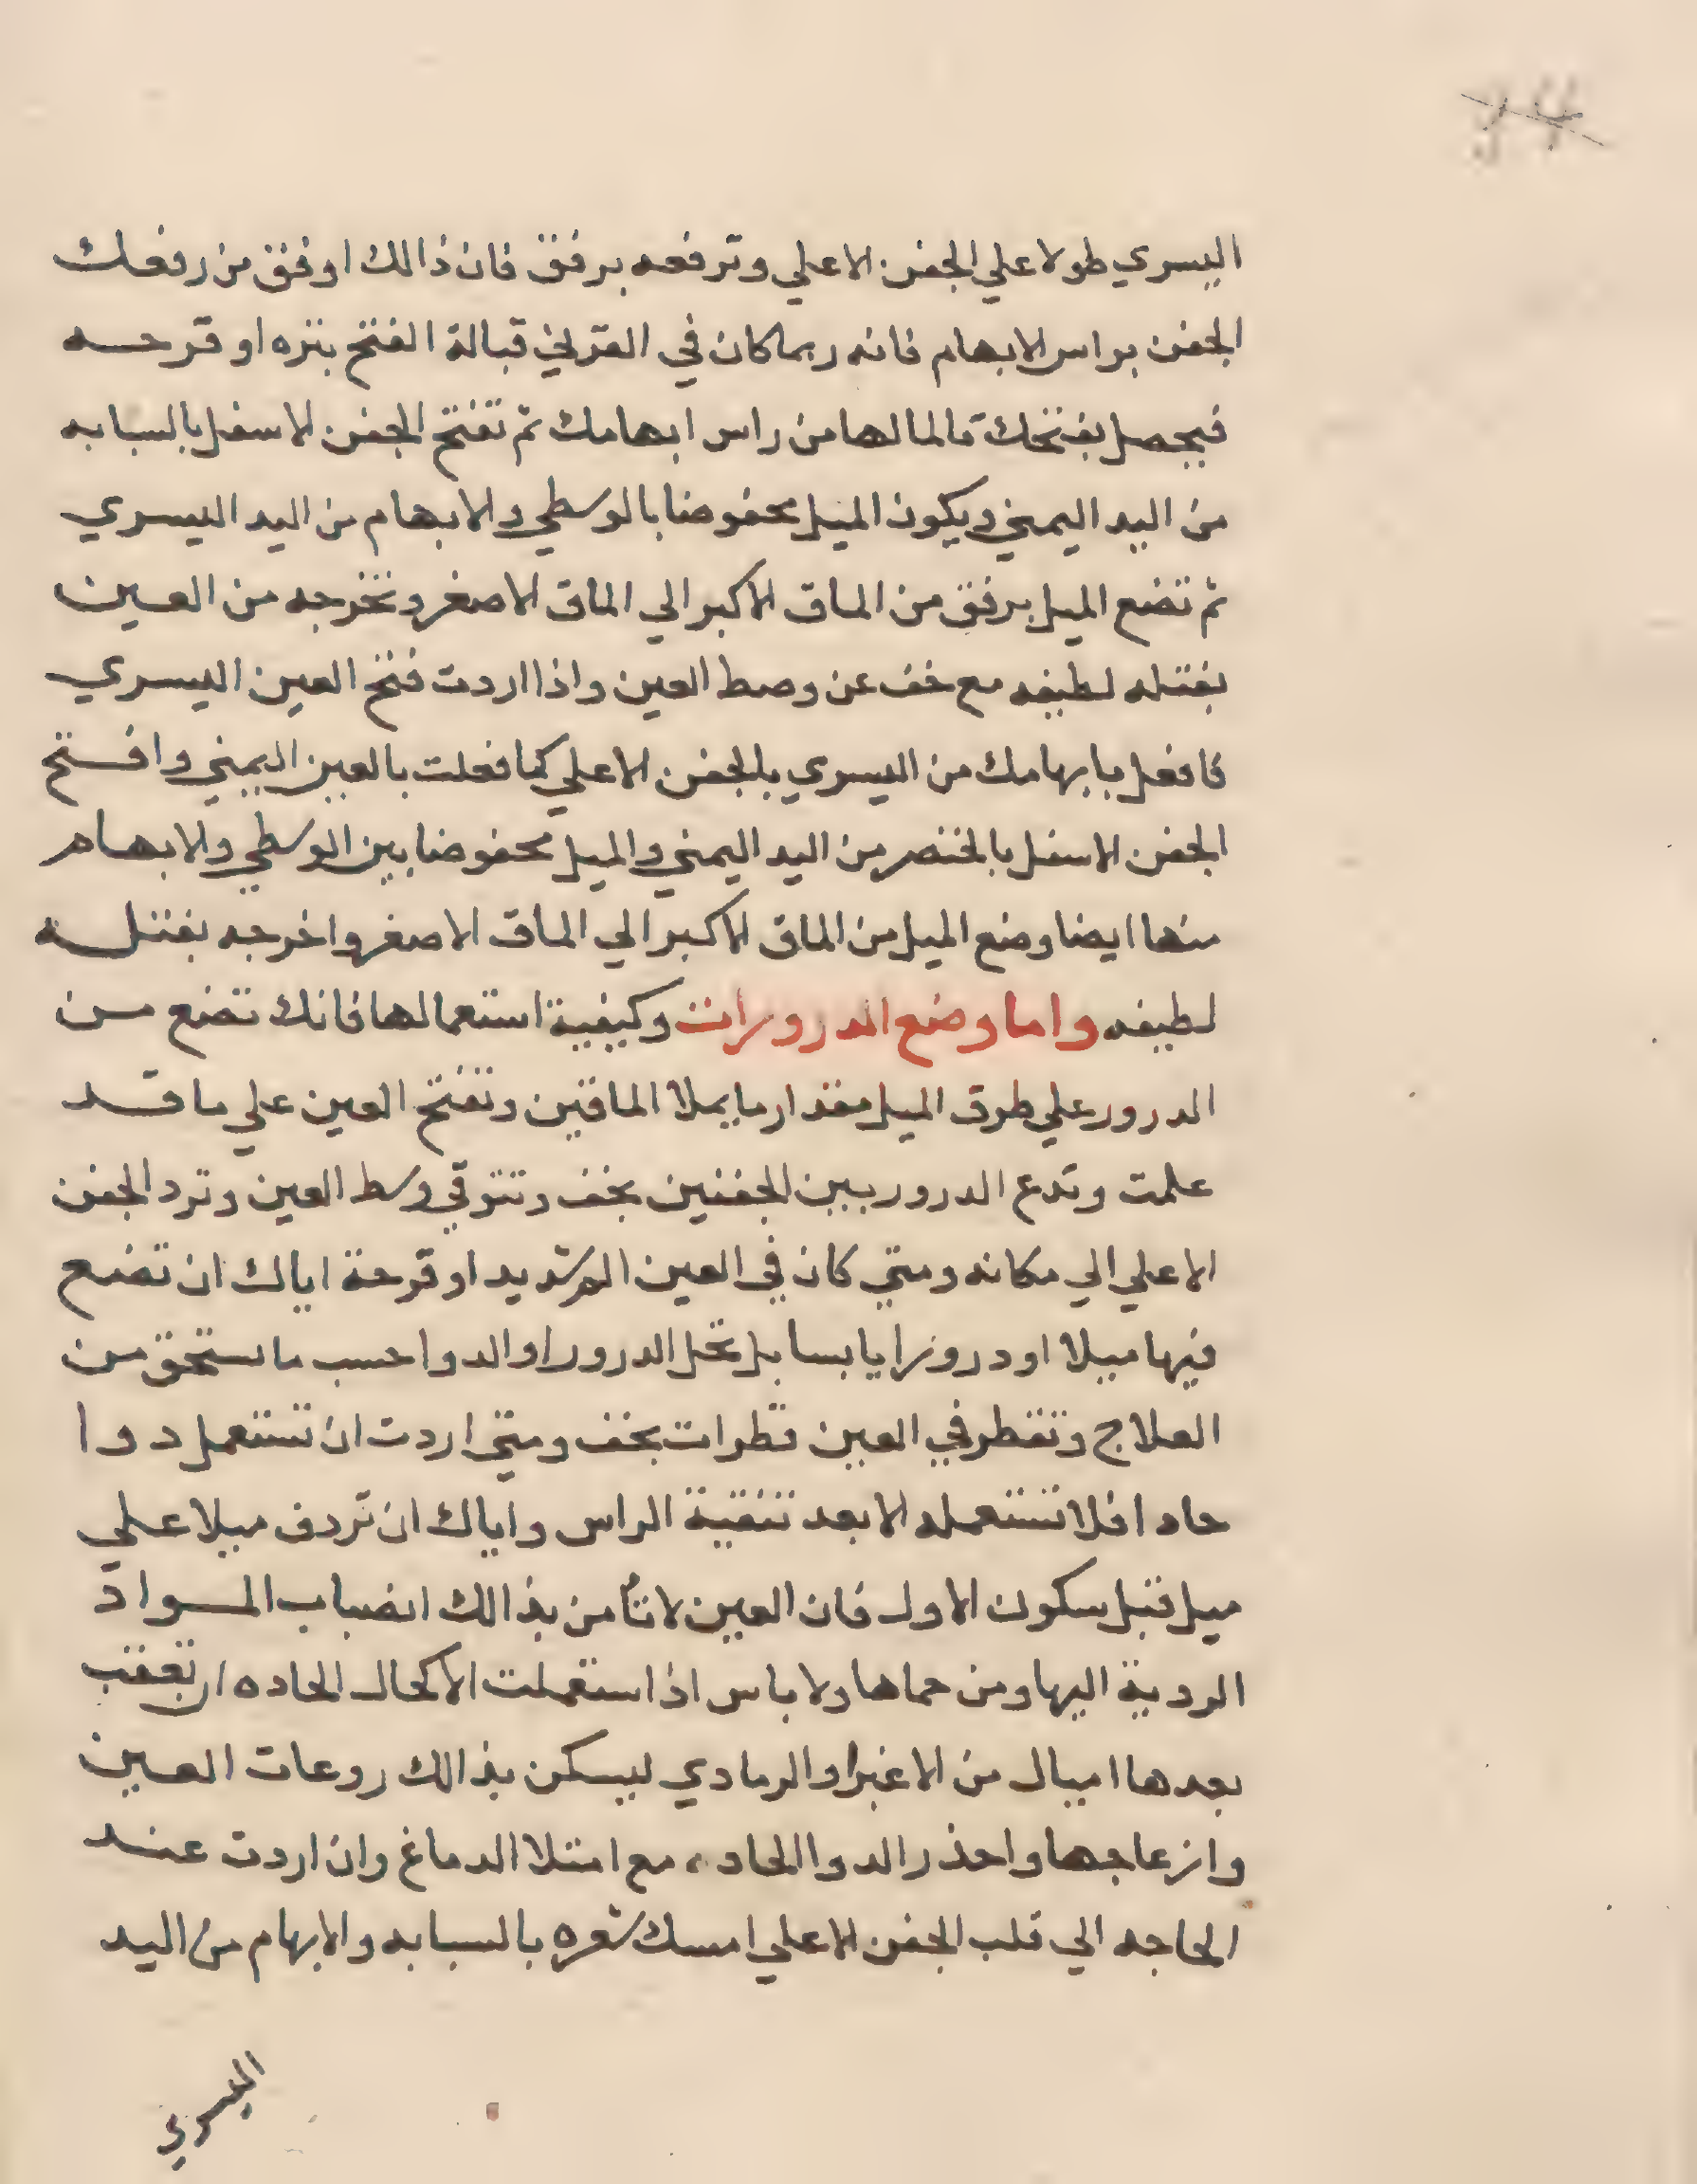 اليسري طولا علي الجفن الاعلي وترفعه برفق فان ذالك اوفق من رفعك
الجفن براس الابهام فانه ربما كان في القرني قبالة الفتح بثره او قرحه
فيحصل بفتحك تالما لها من راس ابهامك ثم تفتح الجفن الاسفل بالسبابه
من اليد اليمني ويكون الميل محفوضا بالوسطي والابهام من اليد اليسري
ثم تضع الميل برفق من الماق الاكبر الي الماق الاصغر وتخرجه من العين
بفتله لطيفه مع خف عن وصط العين واذا اردت فتح العين اليسري
فافعل بابهامك من اليسري بالجفن الاعلي كما فعلت بالعين اليمني وافتح
الجفن الاسفل بالخنصر من اليد اليمني والميل محفوضا بين الوسطي والابهام
منها ايضا وضع الميل من الماق الاكبر الي الماق الاصغر واخرجه بفتله
لطيفه واما وضع الدرورات وكيفية استعمالها فانك تضع من
الدرور علي طرق الميل مقدار ما يملا الماقين وتفتح العين علي ما قد
علمت وتدع الدرور بين الجفنين بخف وتتوقي وسط العين وترد الجفن
الاعلي الي مكانه ومتي كان في العين الم شديد او قرحة اياك ان تضع
فيها ميلا او درورا يابسا بل تحل الدرور او الدوا حسب ما تستحق من
العلاج وتقطر في العين قطرات بخف ومتي اردت ان تستعمل دوا
حادا فلا تستعمله الا بعد تنقية الراس واياك ان تردف ميلا علي
ميل قبل سكون الاول فان العين لا تأمن بذالك انضباب المواد
الردية اليها ومن حماها ولا باس اذا استعملت الاكحال الحاده ان تعقب
بعدها اميال من الاغبر او الرمادي ليسكن بذالك روعات العين
وانزعاجها واحذر الدوا الحاد مع امتلا الدماغ وان اردت عند
الحاجه الي قلب الجفن الاعلي امسك شعره بالسبابه والابهام من اليد
اليسري